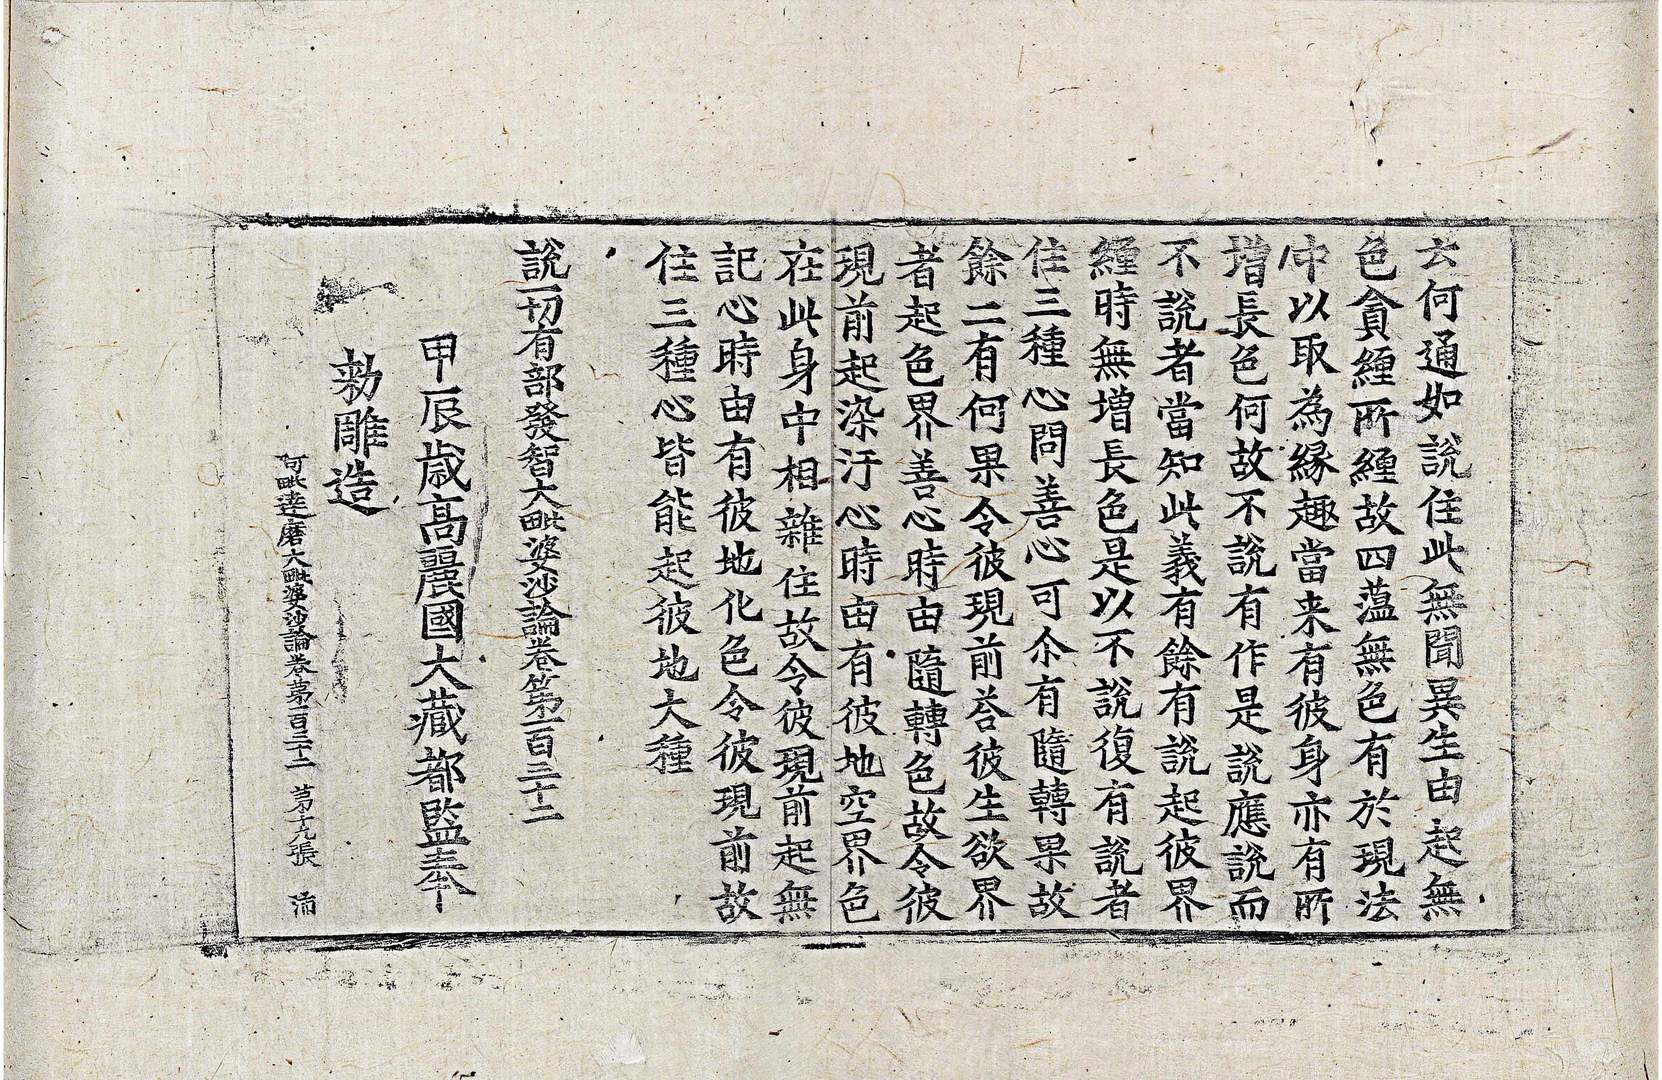 云何通如說住此無聞異生由起無
色貪纏所纏故四薀無色有於現法
中以取為縁趣當来有彼身亦有所
増長色何故不說有作是說應說而
不說者當知此義有餘有說起彼界
纏時無増長色是以不說復有說者
住三種心問善心可尒有隨轉果故
餘二有何果令彼現前荅彼生欲界
者起色界善心時由隨轉色故令彼
現前起染汙心時由有彼地空界色
在此身中相雜住故令彼現前起無
記心時由有彼地化色令彼現前故
住三種心皆能起彼地大種
說一切有部發智大毗婆沙論卷第一百三十二
甲辰歳高麗國大藏都監奉
勑雕造
阿毗達磨大毗婆沙論卷第一百三十二 第十九張 沛